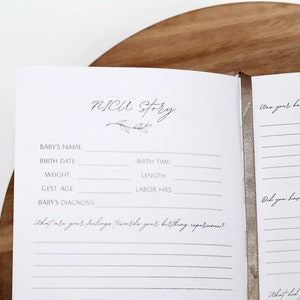 NICU Story
BABY'S NAME
BIRTH DATE BIRTH TIME
WEIGHT LENGTH
GEST AGE LABOR HRS
BABY'S DIAGNOSIS
What are your feelings towards your birthing experience?
Was your ba
Did you hav
What did